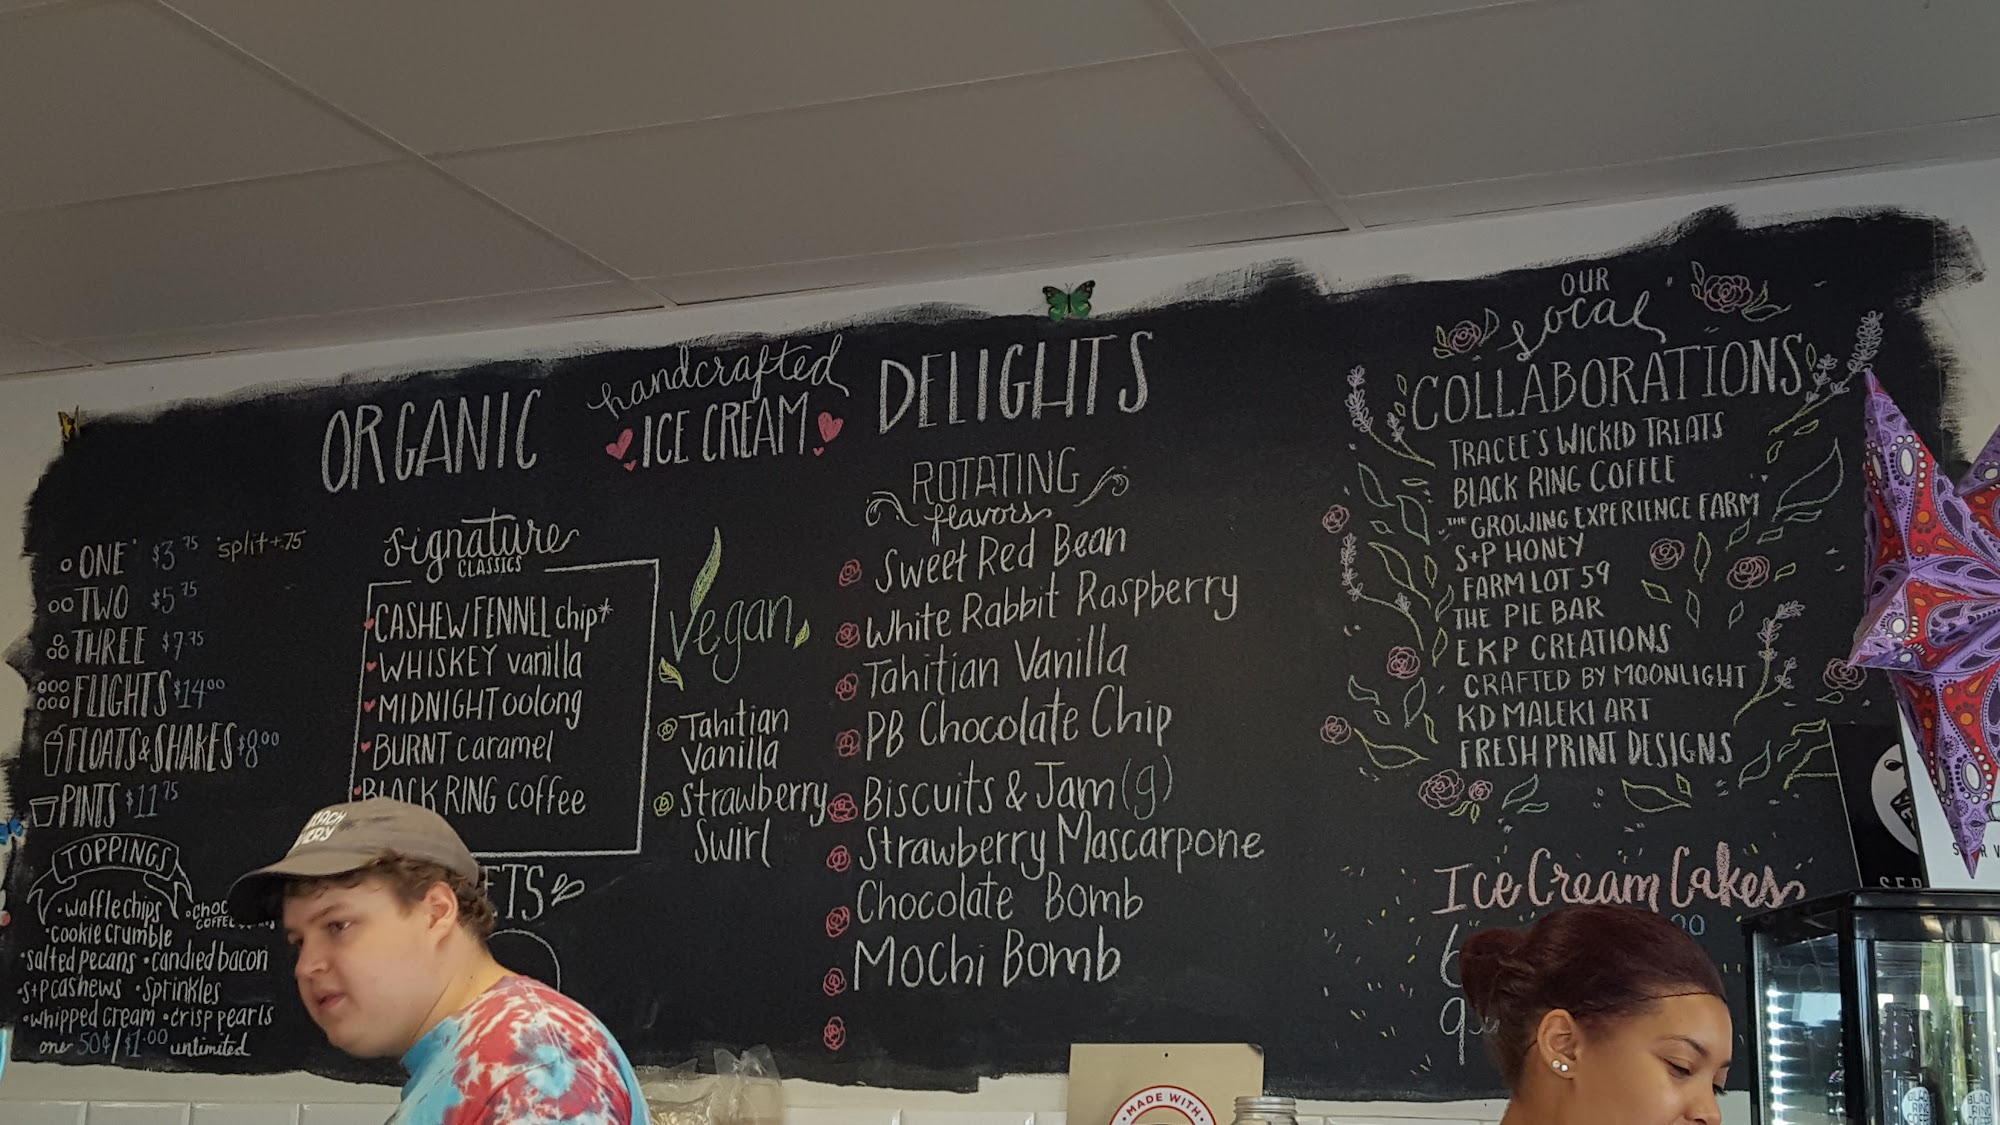 ORGANIC
handcrafted
ICE CREAM
DELIGHTS
ONE $3.75 split +.75
TWO $5.75
THREE $7.75
FLIGHTS $14.00
FLOATS & SHAKES $8.00
PINTS $11.75
TOPPINGS
• waffle chips
• cookie crumble
• salted pecans • candied bacon
• S+P cashews • sprinkles
• whipped cream • crisp pearls
one 50¢/$1.00 unlimited
signature
CLASSICS
CASHEW FENNEL chip*
WHISKEY vanilla
MIDNIGHT oolong
BURNT caramel
BLACK RING coffee
Vegan
Tahitian
Vanilla
Strawberry
Swirl
ROTATING
flavors
Sweet Red Bean
White Rabbit Raspberry
Tahitian Vanilla
PB Chocolate Chip
Biscuits & Jam (g)
Strawberry Mascarpone
Chocolate Bomb
Mochi Bomb
OUR
local
COLLABORATIONS
TRACEE'S WICKED TREATS
BLACK RING COFFEE
THE GROWING EXPERIENCE FARM
S+P HONEY
FARM LOT 59
THE PIE BAR
EKP CREATIONS
CRAFTED BY MOONLIGHT
KD MALEKI ART
FRESH PRINT DESIGNS
Ice Cream Cakes
MADE WITH